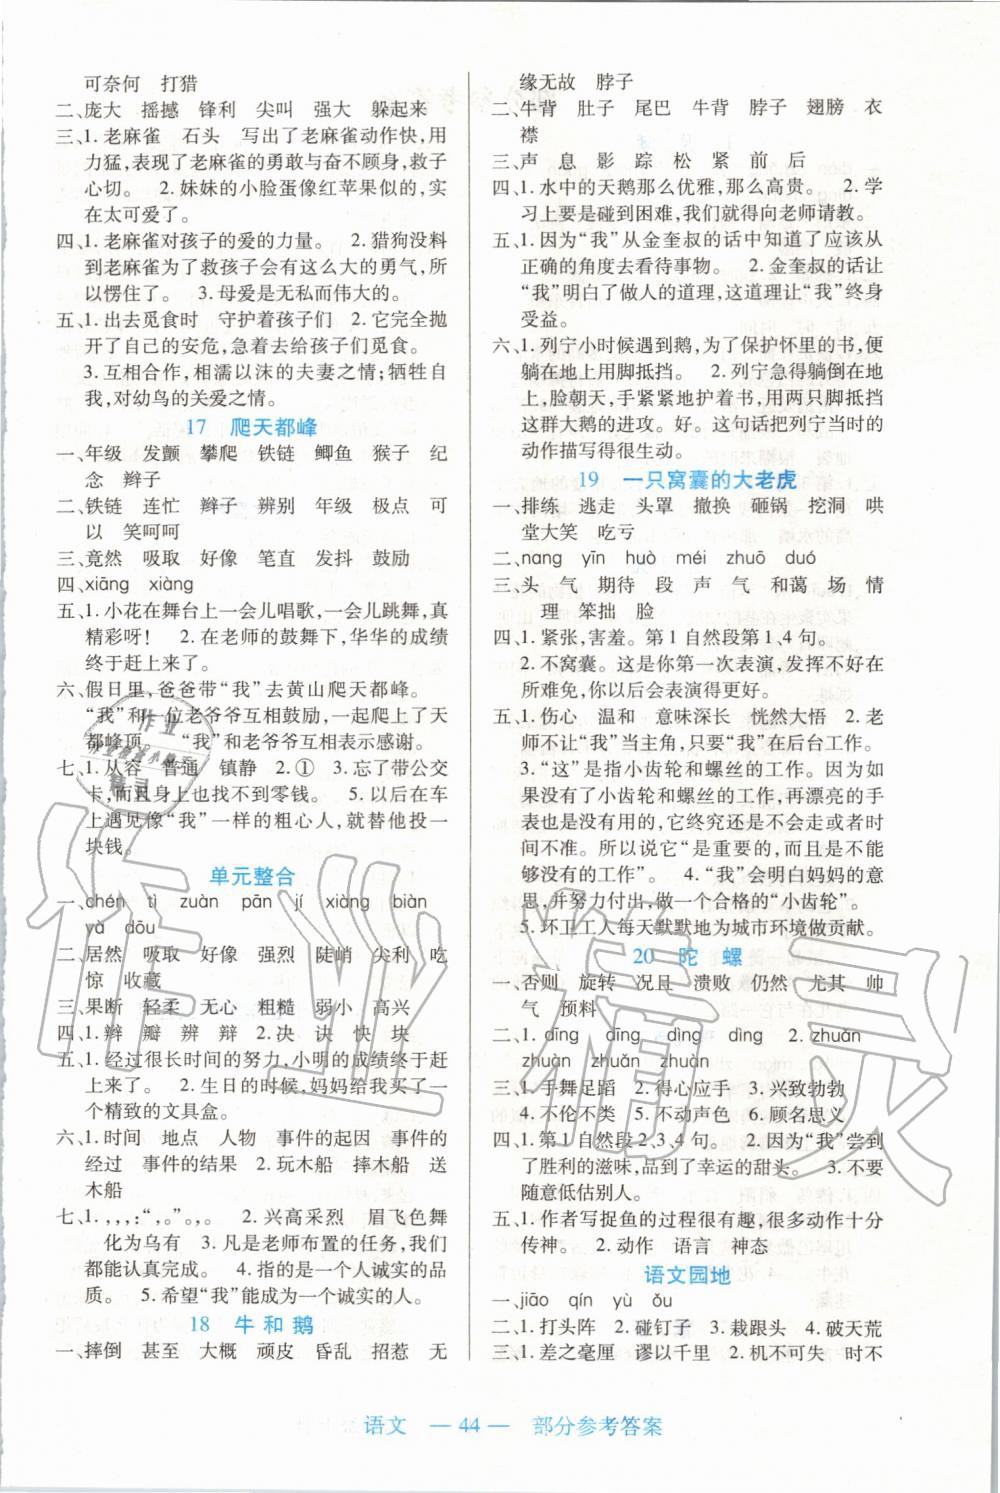 可奈何　打猎
二、庞大　摇撼　锋利　尖叫　强大　躲起来
三、1. 老麻雀　石头　写出了老麻雀动作快，用
力猛，表现了老麻雀的勇敢与奋不顾身，救子
心切。　2. 妹妹的小脸蛋像红苹果似的，实
在太可爱了。
四、1. 老麻雀对孩子的爱的力量。　2. 猎狗没料
到老麻雀为了救孩子会有这么大的勇气，所
以愣住了。　3. 母爱是无私而伟大的。
五、1. 出去觅食时　守护着孩子们　2. 它完全抛
开了自己的安危，急着去给孩子们觅食。
3. 互相合作，相濡以沫的夫妻之情；牺牲自
我，对幼鸟的关爱之情。
17　爬天都峰
一、年级　发颤　攀爬　铁链　鲫鱼　猴子　纪
念　辫子
二、铁链　连忙　辫子　辨别　年级　极点　可
以　笑呵呵
三、竟然　吸取　好像　笔直　发抖　鼓励
四、xiāng　xiàng
五、1. 小花在舞台上一会儿唱歌，一会儿跳舞，真
精彩呀！　2. 在老师的鼓舞下，华华的成绩
终于赶上来了。
六、假日里，爸爸带“我”去黄山爬天都峰。
“我”和一位老爷爷互相鼓励，一起爬上了天
都峰顶。　“我”和老爷爷互相表示感谢。
七、1. 从容　普通　镇静　2. ①　3. 忘了带公交
卡，而且身上也找不到零钱。　5. 以后在车
上遇见像“我”一样的粗心人，就替他投一
块钱。
单元整合
一、chén　tì　zuàn　pān　jí　xiàng　biàn
yà　dǒu
二、居然　吸取　好像　强烈　陡峭　尖利　吃
惊　收藏
三、果断　轻柔　无心　粗糙　弱小　高兴
四、1. 辫　瓣　辨　辩　2. 决　诀　快　块
五、1. 经过很长时间的努力，小明的成绩终于赶
上来了。　2. 生日的时候，妈妈给我买了一
个精致的文具盒。
六、1. 时间　地点　人物　事件的起因　事件的
经过　事件的结果　2. 玩木船　摔木船　送
木船
七、1. ，，，：“，。”。，。　2. 兴高采烈　眉飞色舞
化为乌有　3. 凡是老师布置的任务，我们
都能认真完成。　4. 指的是一个人诚实的品
质。　5. 希望“我”能成为一个诚实的人。
18　牛 和 鹅
一、摔倒　甚至　大概　顽皮　昏乱　招惹　无
缘无故　脖子
二、牛背　肚子　尾巴　牛背　脖子　翅膀　衣
襟
三、声　息　影　踪　松　紧　前　后
四、1. 水中的天鹅那么优雅，那么高贵。　2. 学
习上要是碰到困难，我们就得向老师请教。
五、1. 因为“我”从金奎叔的话中知道了应该从
正确的角度去看待事物。　2. 金奎叔的话让
“我”明白了做人的道理，这道理让“我”终身
受益。
六、1. 列宁小时候遇到鹅，为了保护怀里的书，便
躺在地上用脚抵挡。　2. 列宁急得躺倒在地
上，脸朝天，手紧紧地护着书，用两只脚抵挡
这群大鹅的进攻。好。这句话把列宁当时的
动作描写得很生动。
19　一只窝囊的大老虎
一、排练　逃走　头罩　撤换　砸锅　挖洞　哄
堂大笑　吃亏
二、nang　yīn　huò　méi　zhuō　duó
三、头　气　期待　段　声　气　和蔼　场　情
理　笨拙　脸
四、1. 紧张，害羞。第 1 自然段第 1、4 句。
2. 不窝囊。这是你第一次表演，发挥不好在
所难免，你以后会表演得更好。
五、1. 伤心　温和　意味深长　恍然大悟　2. 老
师不让“我”当主角，只要“我”在后台工作。
3. “这”是指小齿轮和螺丝的工作。因为如
果没有了小齿轮和螺丝的工作，再漂亮的手
表也是没有用的，它终究还是不能走或者时
间不准。所以说它“是重要的，而且是不能
够没有的工作”。　4. “我”会明白妈妈的意
思，并努力付出，做一个合格的“小齿轮”。
5. 环卫工人每天默默地为城市环境做贡献。
20　陀　螺
一、否则　旋转　况且　溃败　仍然　尤其　帅
气　预料
二、1. dīng　dīng　dìng　dìng　2. zhuǎn
zhuàn　zhuǎn　zhuàn
三、1. 手舞足蹈　2. 得心应手　3. 兴致勃勃
4. 不伦不类　5. 不动声色　6. 顾名思义
四、1. 第 1 自然段 2、3、4 句。　2. 因为“我”尝到
了胜利的滋味，品到了幸运的甜头。　3. 不要
随意低估别人。
五、1. 作者写捉鱼的过程很有趣，很多动作十分
传神。　2. 动作　语言　神态
语文园地
一、jiāo　qín　yù　ǒu
二、1. 打头阵　2. 碰钉子　3. 栽跟头　4. 破天荒
三、1. 差之毫厘　谬以千里　2. 机不可失　时不
语文　— 44 —　部分参考答案
作业精灵